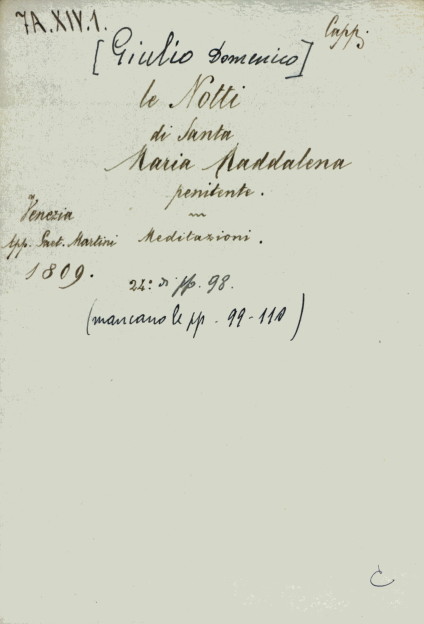 7A.XIV.1.
Capp.
[Giulio Domenico]
le Notti
di Santa
Maria Maddalena
penitente.
Venezia
tpp. Gaet. Martini Meditazioni.
1809.
24.° di pp. 98.
(mancano le pp. 99-110)
C